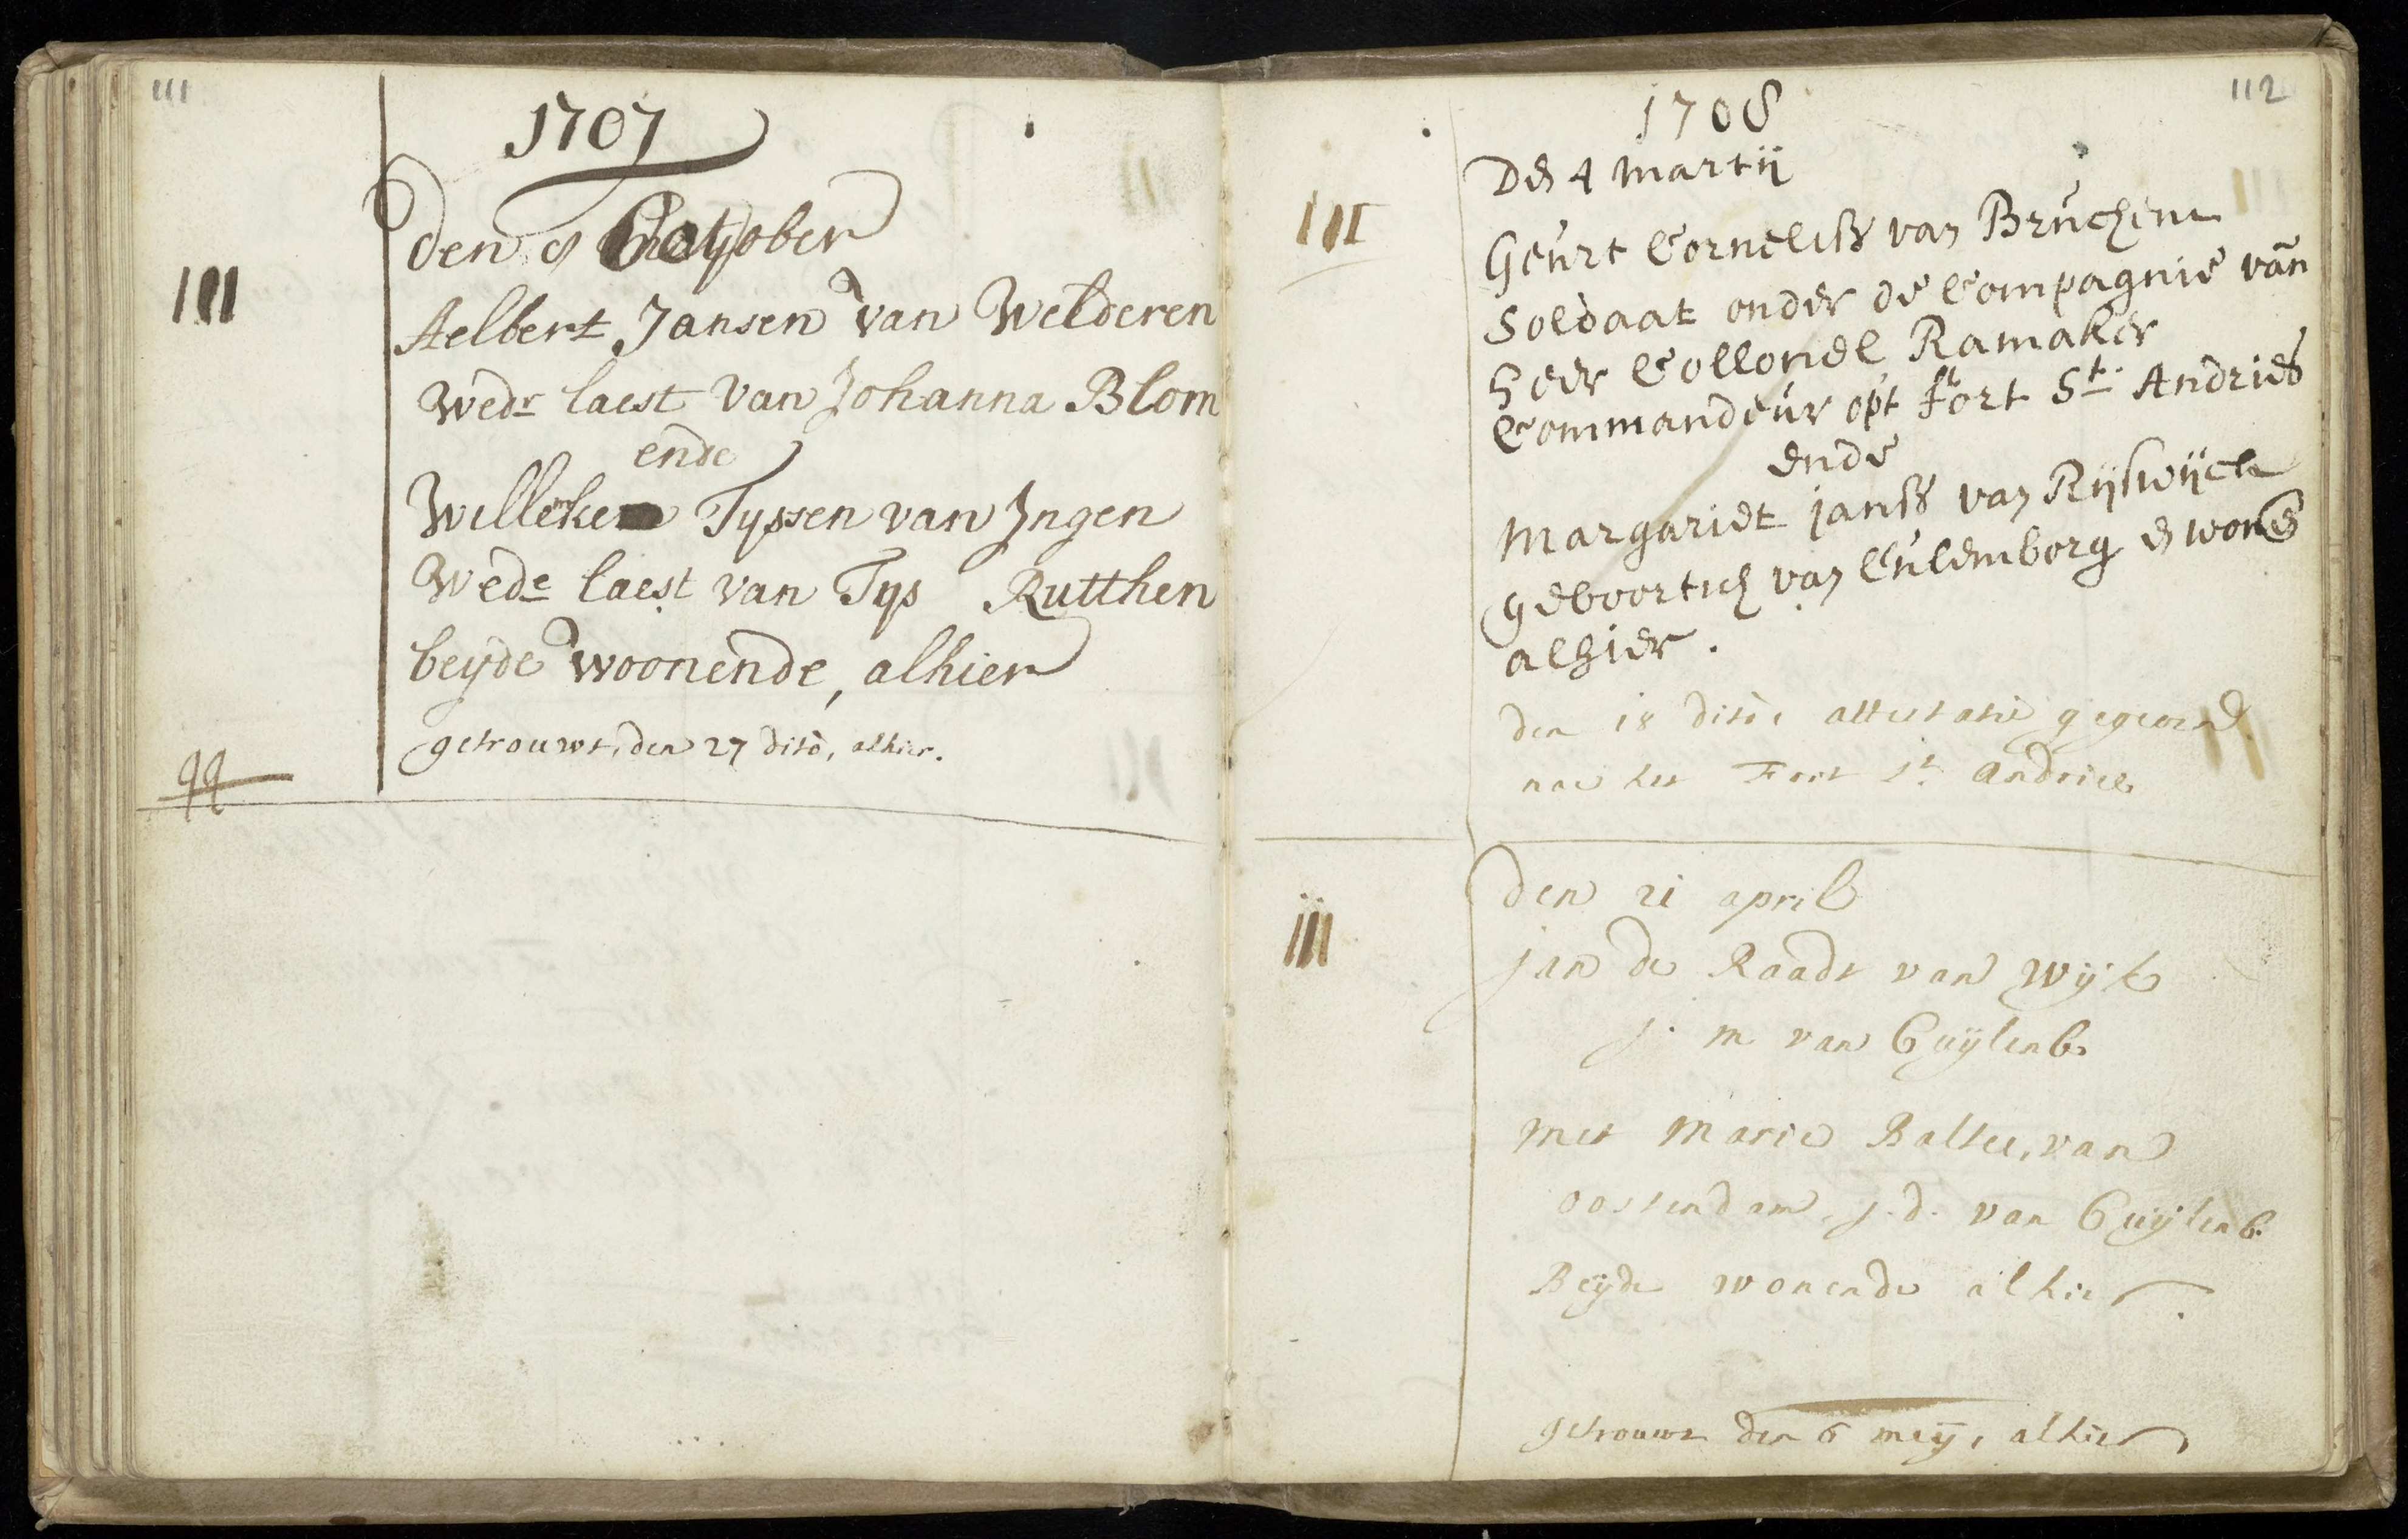 111
1707
den 9 October
III
Aelbert Jansen van Welderen
Wedr laest van Johanna Blom
ende
Willeke Tyssen van Ingen
Wede laest van Tys Rutthen
beyde woonende, alhier
getrouwt, den 27 dito, alhier.
99
112
1708
Den 4 Martij
III
Geurt Corneliss van Bruchem
Soldaat onder de Compagnie van
Heer Collonel Ramaker
Commandeur opt fort St. Andries
ende
Margariet janss van Rijswijck
geboortich van Culemborg en wone
alhier.
den 18 dito, attestatie gegeven
nae het Fort St. Andries
den 21 april
III
jan de Raadt van Wijk
j. m van Cuijlenb.
met Marie Baltes, van
oostendam j. d. van Cuijlenb.
Beyde wonende alhier.
getrouwt den 6 meij, alhier